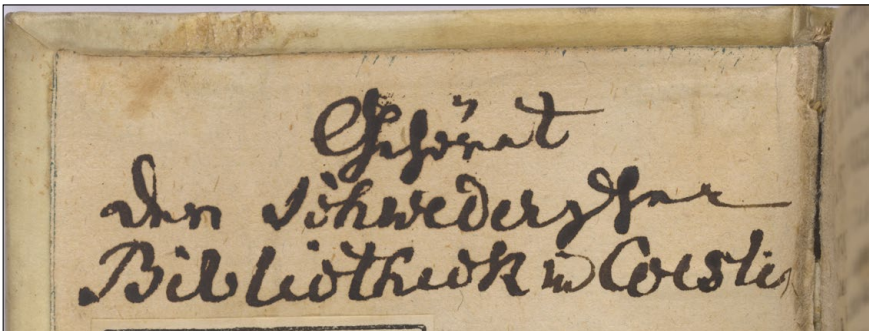 Gehöret
den Schwederschen
Bibliotheck in Coeslin